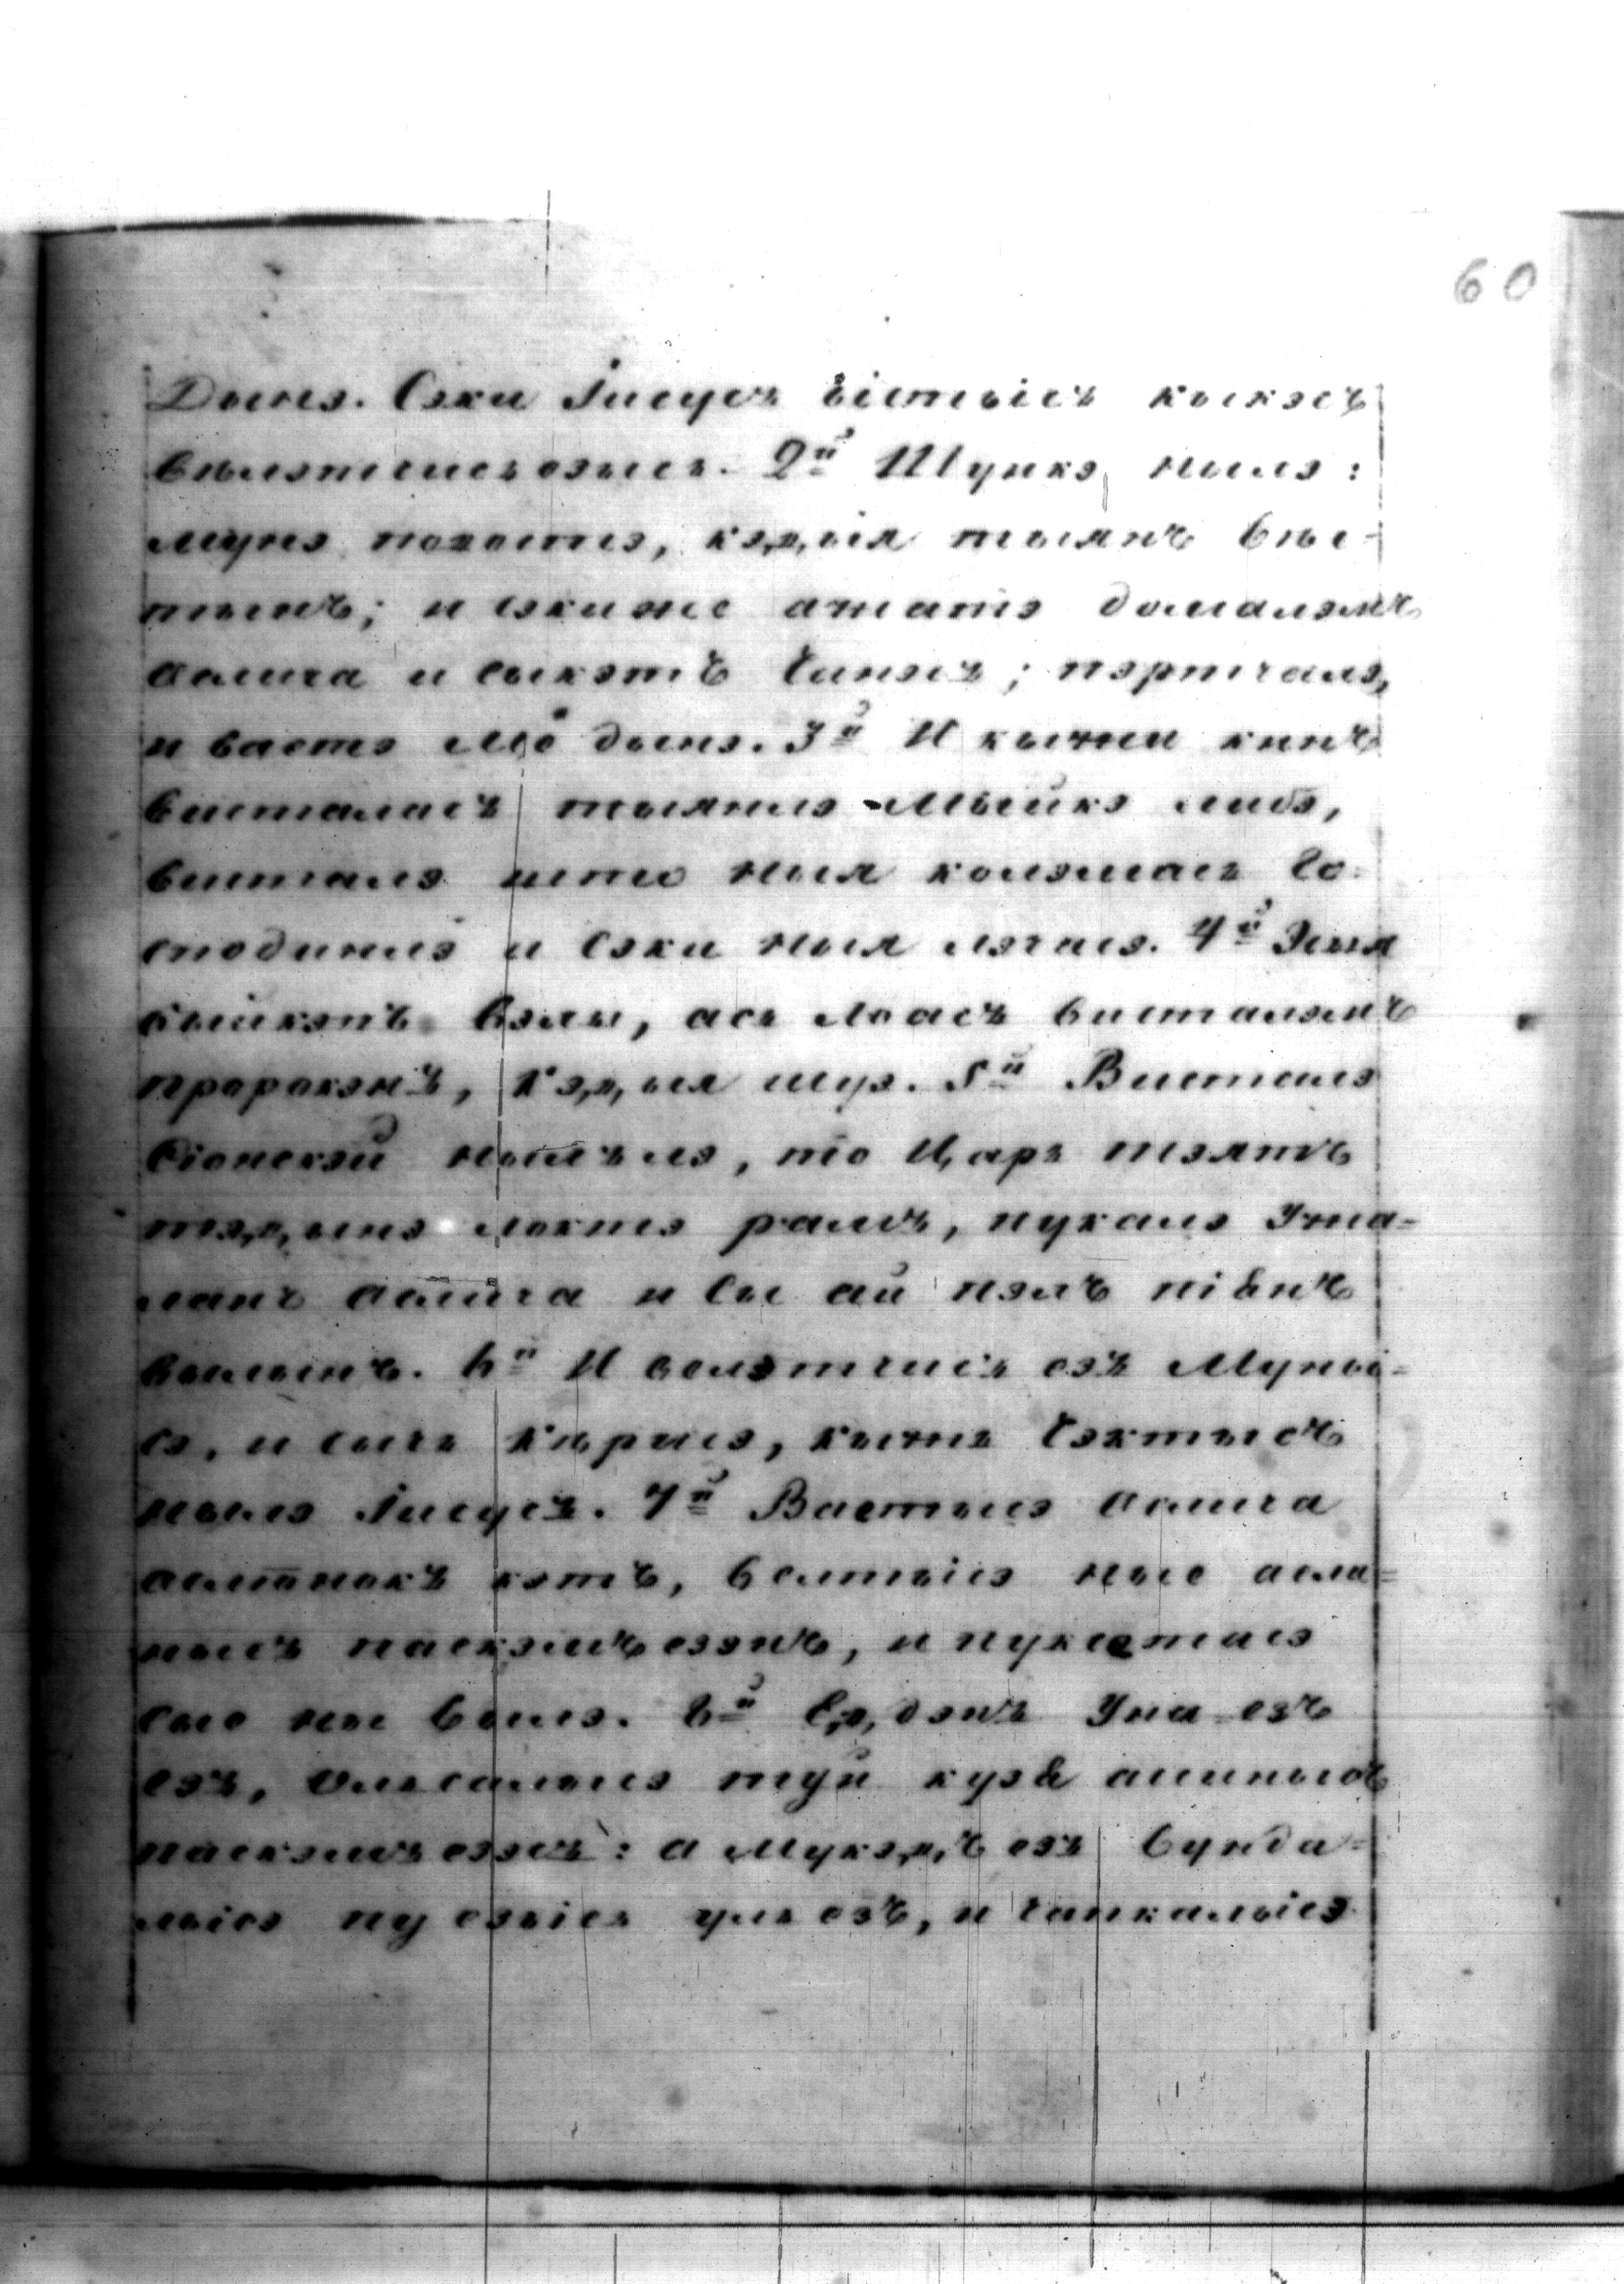 60
Дынэ. Сэки Іисусъ ыстыісъ кыкэсъ
велэтчисьезысь. 2й Шуикэ нылэ:
мунэ поѕостэ, кэ,д,ыя тыянъ вы-
тынъ; и сэки же аѕатэ домалэмъ
ослича и сыкэтъ чипэсъ; пэртчалэ,
и ваетэ мѳ дынэ. 3й И кычем кинъ
висталасъ тыянлэ мыйкэ либэ,
висталэ што ныя колэмась Го-
сподинлэ и сэки ныя лэчасэ. 4й Эшыя
быйкэпъ вэлы, ась лоасъ висталэмъ
пророкэнъ, кэ,д,ыя шуэ. 5й Висталэ
Сіонскэй ныыълэ, то Царъ тэятъ
тэ,д,ынэ локтэ рамъ, пукалэ Ужа-
ланъ ослича и сы ай пэлъ піянъ
вылынъ. 6й И велэтчисъ езъ Муныі-
сэ, и сычъ кѣрысэ, кычи чэктысъ
нылэ Іисусъ. 7й Ваетысэ ослича
аслтнокъ кэтъ, велтыісэ ные асла-
нысъ паскэмъезэнъ, и пуксетасэ
сые ны вылэ. 8й Е,д,дэнъ Уна езъ
езъ, ольсалысэ туй кузя асинысъ
паскэмъезэсъ: а мукэ,д,ъ езъ вунда-
лысэ пу езысь ульезъ, и чапкалыісэ